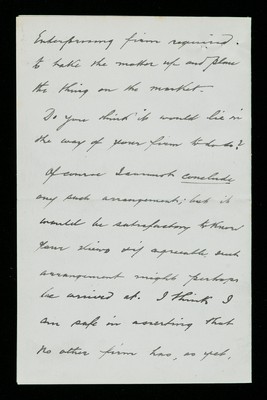 Enterprising firm required
to take the matter up and place
the thing on the market.
Do you think it would lie in
the way of your firm to do so?
Of course I cannot conclude
any such arrangement; but it
would be satisfactory to know
your views & if agreeable, such
arrangement might perhaps
be arrived at. I think I
am safe in asserting that
no other firm has, as yet,